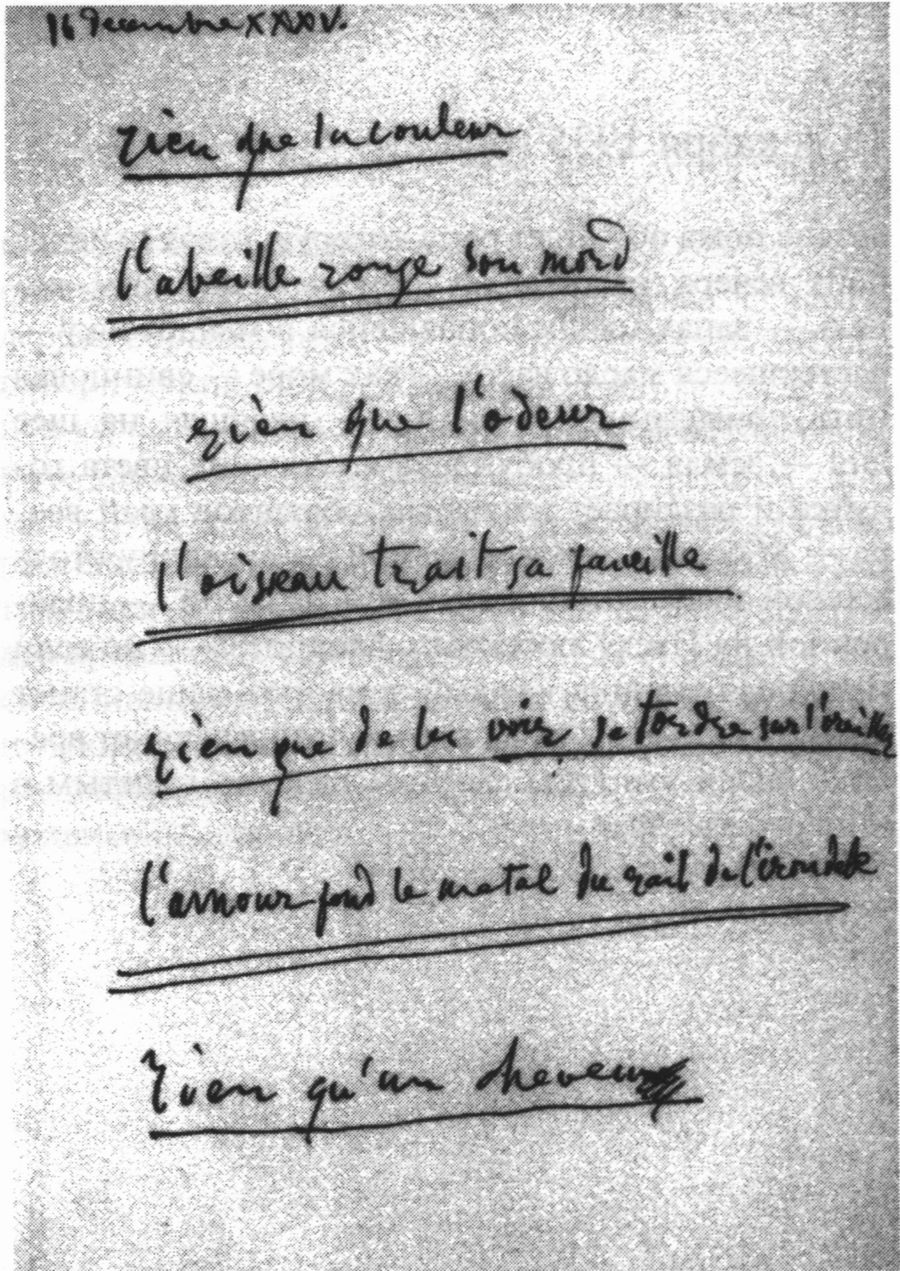 16 Decembre XXXV.
rien que la couleur
l'abeille ronge son mord
rien que l'odeur
l'oiseau trait sa faucille
rien que de les voir se tordre sur l'oreiller
l'amour fond le metal du rail de l'irondelle
rien qu'un cheveu